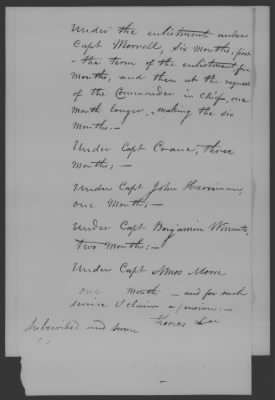 Under the enlistment under
Capt Worrell, six months, first
the term of the enlistment five
months, and then at the request
of the Commander in Chief, one
month longer, - making the six
months. -
Under Capt Crane, three
months; -
Under Capt John Harriman,
one month; -
Under Capt Benjamin
two months: -
Under Capt Amos Moor
one month - and for such
service I claim a pension. -
Subscribed and sworn Thomas